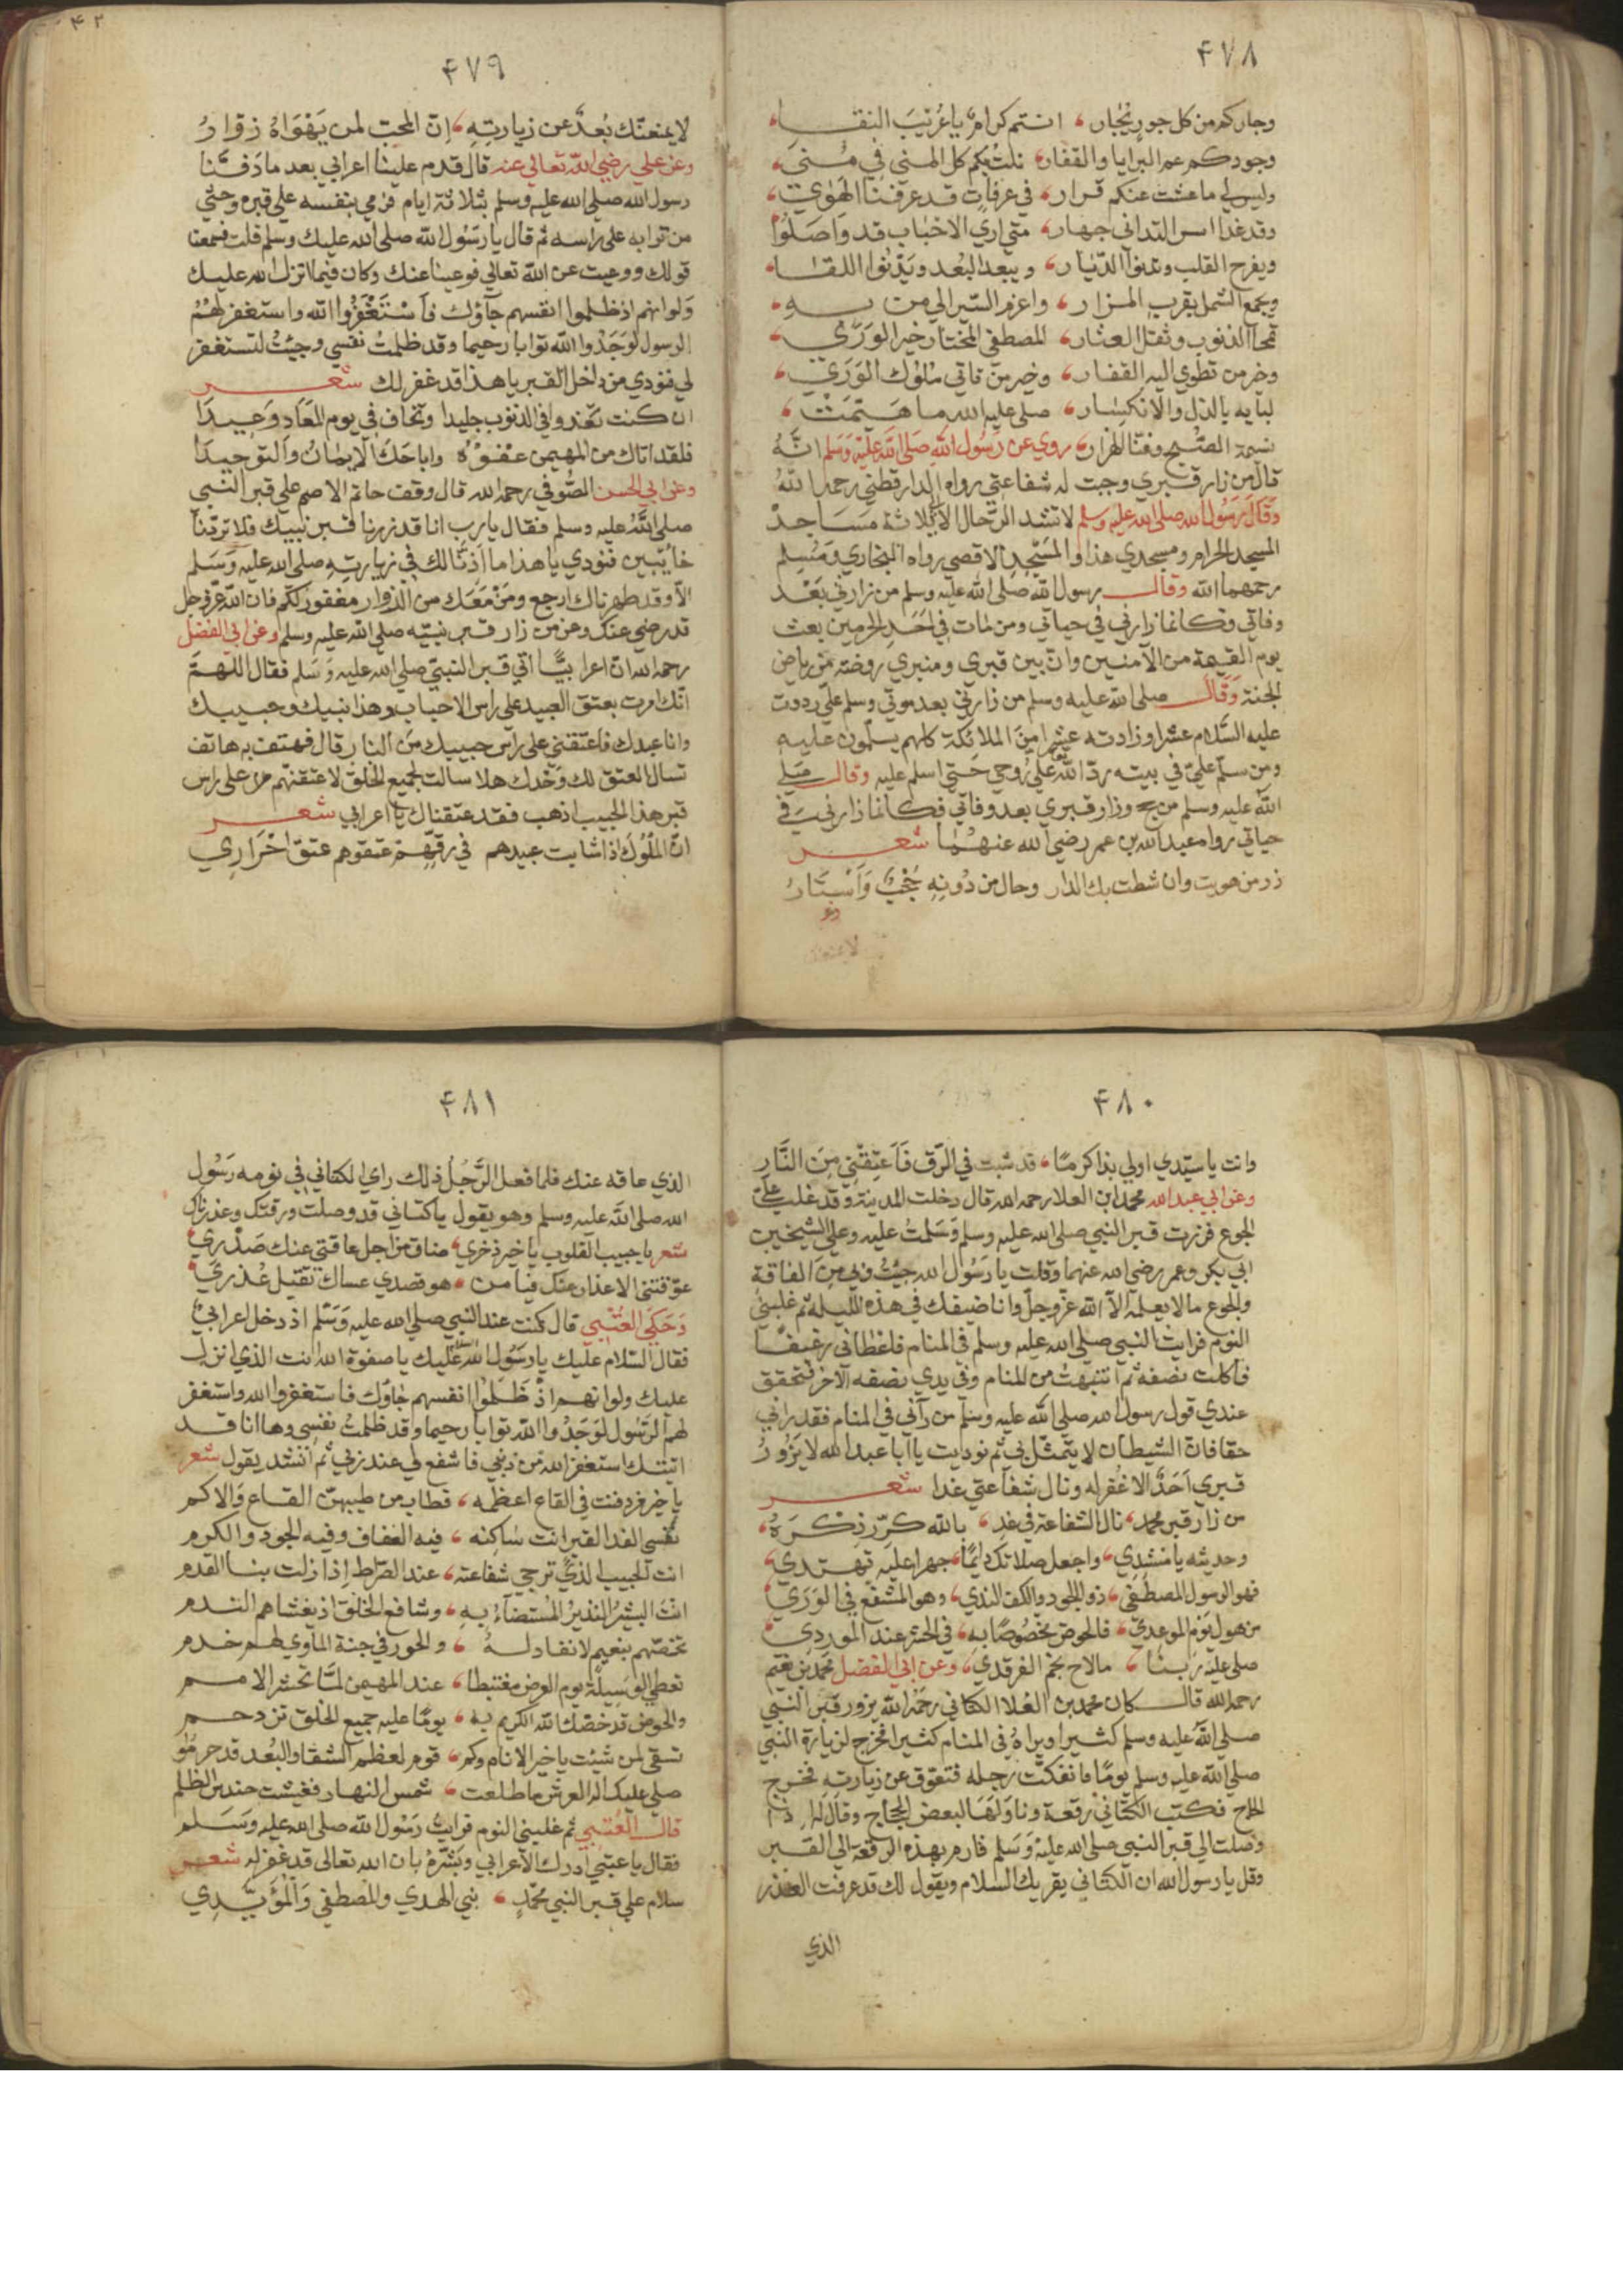 ٤٧٨
وجاركم من كل جور يجار، انتم كرام يا عريب النقا،
وجودكم عم البرايا والقفار، نلت بكم كل المنى في منى،
وليس لي ما عشت عنكم قرار، في عرفات قد عرفنا الهوى،
وقد غدا امس التداني جهار، متى ارى الاحباب قد واصلوا
ويفرح القلب وتدنوا الديار، ويبعد البعد ويدنوا اللقا،
ويجمع الشمل بقرب المزار، واعزم السير الى من به،
تمحا الذنوب وتقل العثار، المصطفى المختار خير الورى،
وخير من تطوي اليه القفار، وخير من تاتي ملوك الورى،
لبابه بالذل والانكسار، صلى عليه الله ما هيمت،
نسمة الصبح وغنا الهزار، روي عن رسول الله صلى الله عليه وسلم انه
قال من زار قبري وجبت له شفاعتي رواه الدارقطني رحمه الله
وقال رسول الله صلى الله عليه وسلم لا تشد الرحال الا لثلاثة مساجد
المسجد الحرام ومسجدي هذا والمسجد الاقصى رواه البخاري ومسلم
رحمهما الله وقال رسول الله صلى الله عليه وسلم من زارني بعد
وفاتي فكانما زارني في حياتي ومن مات في احد الحرمين بعث
يوم القيمة من الآمنين وان بين قبري ومنبري روضة من رياض
الجنة وقال صلى الله عليه وسلم من زارني بعد موتي وسلم علي رددت
عليه السلام عشرا وزادته عشرا من الملائكة كلهم يسلمون عليه
ومن سلم علي في بيته رد الله تعالى علي روحي حتى اسلم عليه وقال صلى
الله عليه وسلم من حج وزار قبري بعد وفاتي فكانما زارني في
حياتي رواه عبد الله بن عمر رضي الله عنهما شعر
زر من هويت وان شطت بك الدار وحال من دونه حجب واستار
٤٧٩
لا يمنعنك بعد عن زيارته، ان المحب لمن يهواه زوار
وعن علي رضي الله تعالى عنه قال قدم علينا اعرابي بعد ما دفنا
رسول الله صلى الله عليه وسلم بثلاثة ايام فرمي بنفسه على قبره وحثى
من ترابه على راسه ثم قال يا رسول الله صلى الله عليك وسلم قلت فسمعنا
قولك ووعيت عن الله تعالى فوعينا عنك وكان فيما انزل الله عليك
ولو انهم اذ ظلموا انفسهم جآؤك فاستغفروا الله واستغفر لهم
الرسول لوجدوا الله توابا رحيما وقد ظلمت نفسي وجئت لتستغفر
لي فنودي من داخل القبر يا هذا قد غفر لك شعر
ان كنت تغدوا في الذنوب جليدا وتخاف في يوم المعاد وعيدا
فلقد اتاك من المهيمن عفوه واباحك الايمان والتوحيدا
وعن ابي الحسن الصوفي رحمه الله قال وقف حاتم الاصم على قبر النبي
صلى الله عليه وسلم فقال يا رب انا قد زرنا قبر نبيك فلا تردنا
خائبين فنودي يا هذا ما اذنا لك في زيارته صلى الله عليه وسلم
الا وقد طهرناك ارجع ومن معك من الزوار مغفور لكم فان الله عز وجل
قد رضي عنك وعن من زار قبر نبيه صلى الله عليه وسلم وعن ابي الفضل
رحمه الله ان اعرابيا اتي قبر النبي صلى الله عليه وسلم فقال اللهم
انك امرت بعتق العبيد على راس الاحباب وهذا نبيك وحبيبك
وانا عبدك فاعتقني على راس حبيبك من النار قال فهتف به هاتف
تسال العتق لك وحدك هلا سالت لجميع الخلق لاعتقنهم على راس
قبر هذا الحبيب اذهب فقد عتقناك يا اعرابي شعر
ان الملوك اذا شابت عبيدهم في رقهم عتقوهم عتق احراري
٤٨٠
وانت يا سيدي اولي بذا كرما، قد شبت في الرق فاعتقني من النار
وعن ابي عبد الله محمد ابن العلا رحمه الله قال دخلت المدينة وقد غلب علي
الجوع فزرت قبر النبي صلى الله عليه وسلم وسلمت عليه وعلى الشيخين
ابي بكر وعمر رضي الله عنهما وقلت يا رسول الله جئت وبي من الفاقة
والجوع ما لا يعلمه الا الله عز وجل وانا ضيفك في هذه الليلة ثم غلبني
النوم فرايت النبي صلى الله عليه وسلم في المنام فاعطاني رغيفا
فاكلت نصفه ثم انتبهت من المنام وفي يدي نصفه الآخر فتحقق
عندي قول رسول الله صلى الله عليه وسلم من رآني في المنام فقد راني
حقا فان الشيطان لا يتمثل بي ثم نوديت يا ابا عبد الله لا يزور
قبري احد الا غفر له ونال شفاعتي غدا شعر
من زار قبر محمد، نال الشفاعة في غد، بالله كرر ذكره،
وحديثه يا منشدي، واجعل صلاتك دايما، جهرا عليه تهتدي،
فهو الرسول المصطفى، ذو الجود والكف الندي، وهو المشفع في الورى
من هول يوم الموعدي، فالحوض مخصوصا به، في الحشر عند الموردي
صلى عليه ربنا، ما لاح نجم الفرقدي، وعن ابي الفضل محمد بن نعيم
رحمه الله قال كان محمد بن العلا الكتاني رحمه الله يزور قبر النبي
صلى الله عليه وسلم كثيرا ويراه في المنام كثيرا فخرج لزيارة النبي
صلى الله عليه وسلم يوما فانفكت رجله فتعوق عن زيارته فخرج
الحاج فكتب الكتاني رقعة وناولها لبعض الحجاج وقال له اذا
وصلت الى قبر النبي صلى الله عليه وسلم فارم بهذه الرقعة الى القبر
وقل يا رسول الله ان الكتاني يقريك السلام ويقول لك قد عرفت العذر
الذي
٤٨١
الذي عاقه عنك فلما فعل الرجل ذلك راى الكتاني في نومه رسول
الله صلى الله عليه وسلم وهو يقول يا كتاني قد وصلت ورقتك وعذرناك
شعر يا حبيب القلوب يا خير ذخري، ضاق من اجل عاقتي عنك صدري
عوقتني الاعذار عنك فيا من، هو قصدي عساك تقبل عذري
وحكى العتبي قال كنت عند النبي صلى الله عليه وسلم اذ دخل اعرابي
فقال السلام عليك يا رسول الله السلام عليك يا صفوة الله انت الذي انزل
عليك ولو انهم اذ ظلموا انفسهم جاؤك فاستغفروا الله واستغفر
لهم الرسول لوجدوا الله توابا رحيما وقد ظلمت نفسي وها انا قد
اتيتك استغفر الله من ذنبي فاشفع لي عند ربي ثم انشد يقول شعر
يا خير من دفنت في القاع اعظمه، فطاب من طيبهن القاع والاكم
نفسي الفدا لقبر انت ساكنه، فيه العفاف وفيه الجود والكرم
انت الحبيب الذي ترجى شفاعته، عند الصراط اذا زلت بنا القدم
انت البشير النذير المستضاء به، وشافع الخلق اذ يغشاهم الندم
تخصهم بنعيم لا نفاد له، والحور في جنة الماوي لهم خدم
تعطي الوسيلة يوم العرض مغتبطا، عند المهيمن لما تحشر الامم
والحوض قد خصك الله الكريم به، يوما عليه جميع الخلق تزدحم
تسقي لمن شئت يا خير الانام وكم، قوم لعظم الشقا والبعد قد حرموا
صلى عليك اله العرش ما طلعت، شمس النهار فغيشت حندس الظلم
قال العتبي ثم غلبني النوم فرايت رسول الله صلى الله عليه وسلم
فقال يا عتبي ادرك الاعرابي وبشره بان الله تعالى قد غفر له شعر
سلام على قبر النبي محمد، نبي الهدى والمصطفى والمؤيدي